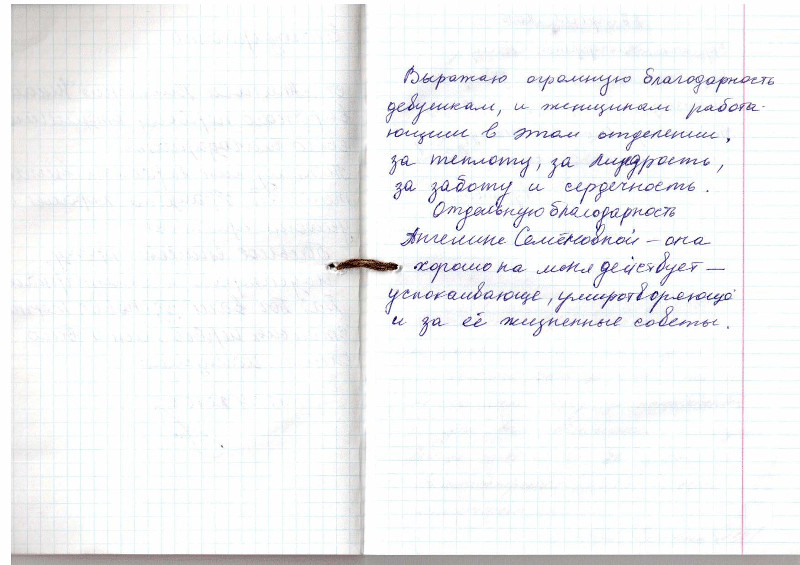 Выражаю огромную благодарность
девушкам, и женщинам работа-
ющим в этом отделении,
за теплоту, за мудрость,
за заботу и сердечность.
Отдельную благодарность
Ангелине Семёновной – она
хорошо на меня действует –
успокаивающе, умиротворяюще
и за её жизненные советы.